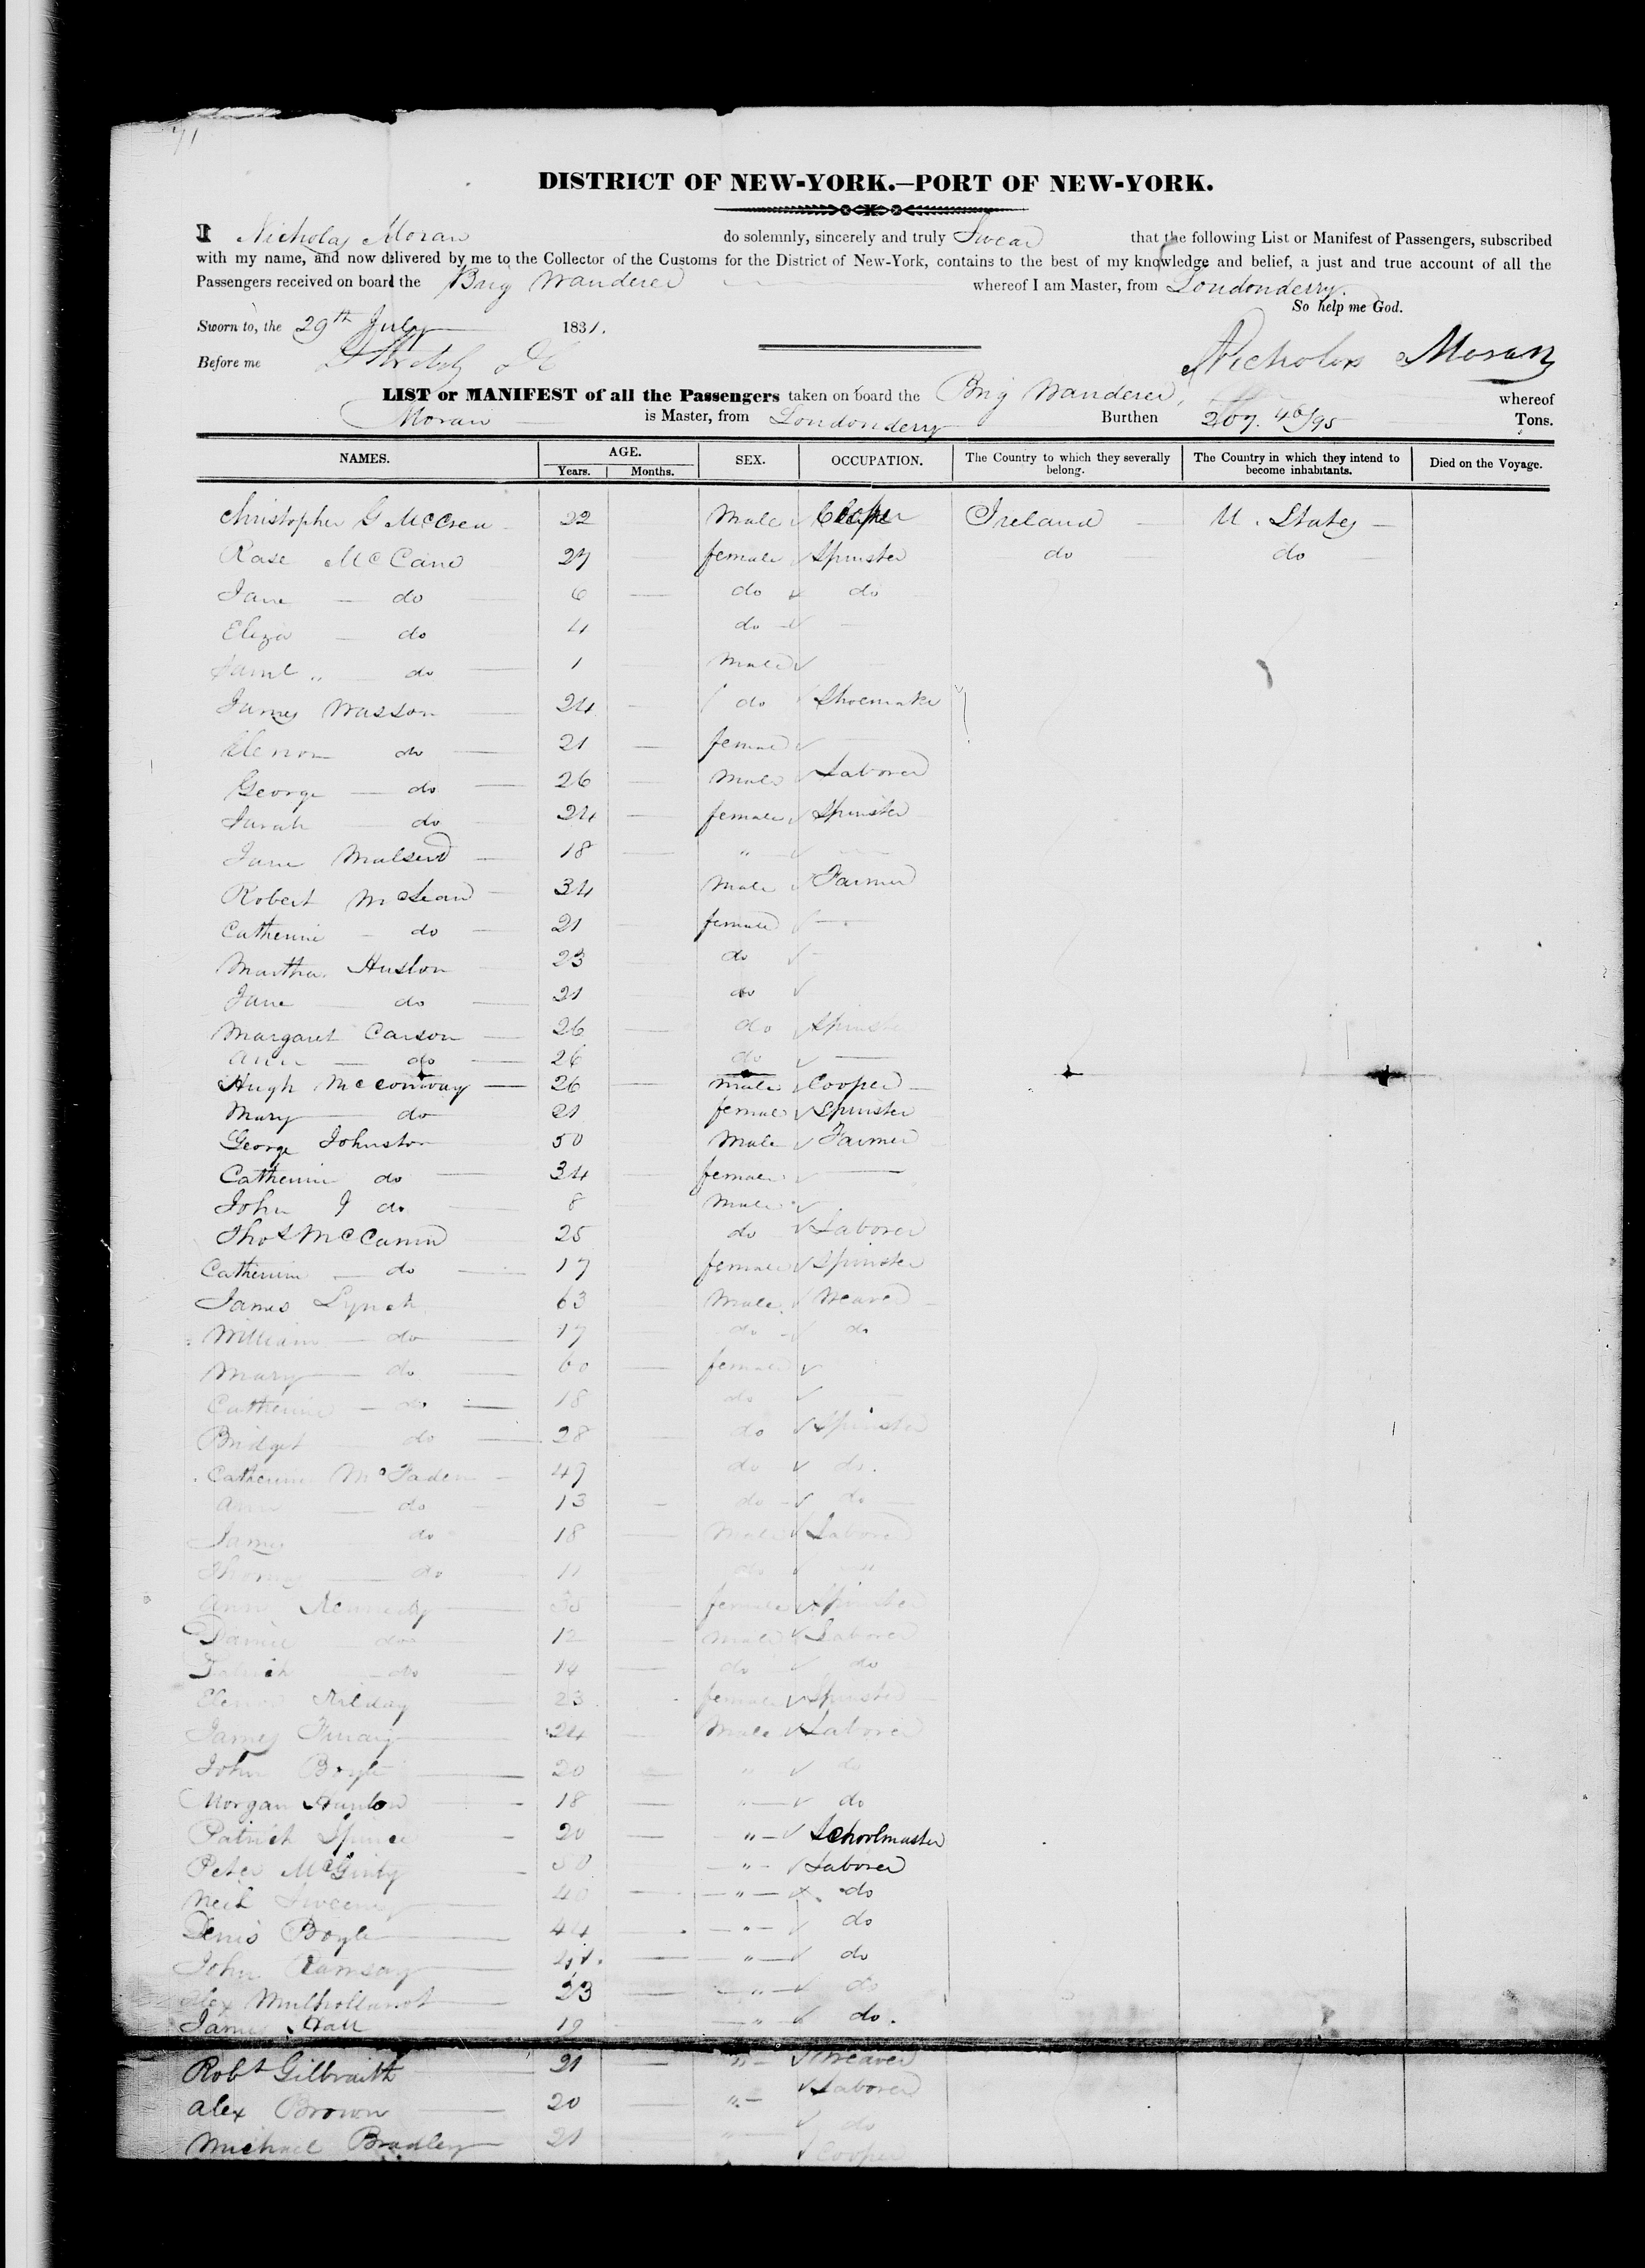 71
DISTRICT OF NEW-YORK.—PORT OF NEW-YORK.
I Nicholas Moran do solemnly, sincerely and truly Swear that the following List or Manifest of Passengers, subscribed
with my name, and now delivered by me to the Collector of the Customs for the District of New-York, contains to the best of my knowledge and belief, a just and true account of all the
Passengers received on board the Brig Wanderer whereof I am Master, from Londonderry.
So help me God.
Sworn to, the 29th July 1831.
Before me
Nicholas Moran
LIST or MANIFEST of all the Passengers taken on board the Brig Wanderer, whereof
Moran is Master, from Londonderry Burthen 207. 46/95 Tons.
NAMES. AGE. Years. Months. SEX. OCCUPATION. The Country to which they severally belong. The Country in which they intend to become inhabitants. Died on the Voyage.
Christopher G McCrea 22 Male Ireland U. States
Rose McCann 27 female Spinster do do
Jane do 6 do do
Eliza do 4 do
Saml " do 1 Male
James Wasson 24 do Shoemaker
Elenor do 21 female
George do 26 Male Laborer
Sarah do 24 female Spinster
Jane 18 "
Robert McLean 34 Male Farmer
Catherine do 21 female
Martha Huston 23 do
Jane do 21 do
Margaret Carson 26 do Spinster
Ann do 26 do
Hugh McConway 26 Male Cooper
Mary do 21 female Spinster
George Johnston 50 Male Farmer
Catherine do 34 female
John J do 8 Male
Thos McCann 25 do Laborer
Catherine do 17 female Spinster
James Lynch 63 Male Weaver
William do 17 do do
Mary do 60 female
Catherine do 18 do
Bridget do 28 do Spinster
Catherine McFaden 49 do do.
Ann do 13 do do
James do 18 Male Laborer
Thomas do 11 do "
Ann Kennedy 30 female Spinster
Daniel do 12 Male Laborer
Patrick do 14 do do
Elenor Kilday 23 female Spinster
James 24 Male Laborer
John Boyle 20 " do
Morgan Hanlon 18 " do
Patrick 20 " Schoolmaster
Peter McGinty 50 " Laborer
Neil Sweeney 40 " do
Denis Boyle 44 " do
John Ramsay 21. " do
Alex Mulholland 23 " do
James Hall 19 " do.
Robt Gilbraith 21 " Weaver
Alex Brown 20 " Laborer
Michael Bradley 21 " do
Cooper